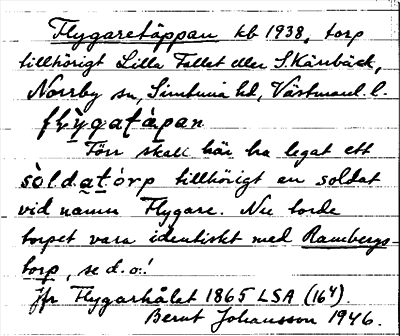 Flygaretäppan kb 1938, torp
tillhörigt Lilla Fallet eller Skärsbäck,
Norrby sn, Simtuna hd, Västmanl. l.
flỳgatàpan
Förr skall här ha legat ett
sòldatórp tillhörigt en soldat
vid namn Flygare. Nu torde
torpet vara identiskt med Rambergs-
torp, se d. o.!
Jfr Flygarhålet 1865 LSA (16⁴)
Bernt Johansson 1946.